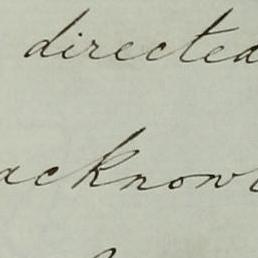 directed
acknowl